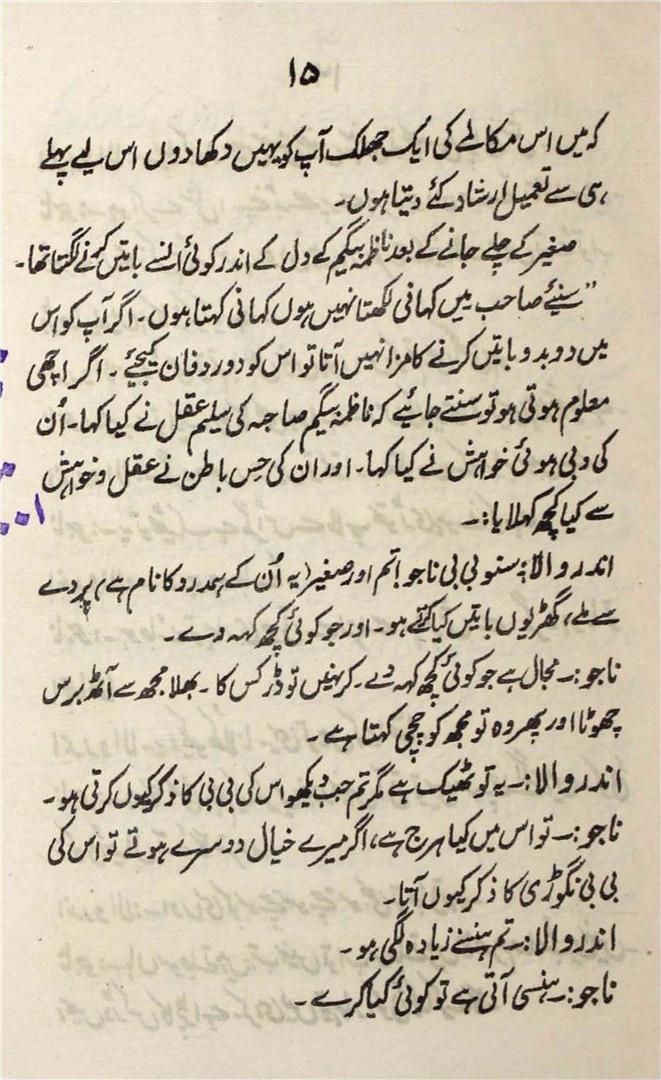 ۱۵
کہ میں اس مکالمے کی ایک جھلک آپ کو یہیں دکھا دوں اس لیے پہلے
ہی سے تعمیل ارشاد کئے دیتا ہوں۔
صغیر کے چلے جانے کے بعد ناظمہ بیگم کے دل کے اندر کوئی انسے باتیں کرنے لگتا تھا۔
"سنیے صاحب میں کہانی لکھتا نہیں ہوں کہانی کہتا ہوں۔ اگر آپ کو اس
میں دوبدو باتیں کرنے کا مزا نہیں آتا تو اس کو دور دفان کیجئے۔ اگر اچھی
معلوم ہوتی ہو تو سنتے جائیے کہ ناظمہ بیگم صاحبہ کی سلیم عقل نے کیا کہا۔ اُن
کی دبی ہوئی خواہش نے کیا کہا۔ اور ان کی حِس باطن نے عقل و خواہش
سے کیا کچھ کہلایا:۔
اندر والا:۔ سنو بی بی ناجو! تم اور صغیر (یہ اُن کے ہمدرد کا نام ہے) پردے
سے ملے، گھڑیوں باتیں کیا کئے ہو۔ اور جو کوئی کچھ کہہ دے۔
ناجو:۔ مجال ہے جو کوئی کچھ کہہ دے۔ کر نہیں تو ڈر کس کا۔ بھلا مجھ سے آٹھ برس
چھوٹا اور پھر وہ تو مجھ کو چچی کہتا ہے۔
اندر والا:۔ یہ تو ٹھیک ہے مگر تم جب دیکھو اس کی بی بی کا ذکر کیوں کرتی ہو۔
ناجو:۔ تو اس میں کیا ہرج ہے، اگر میرے خیال دوسرے ہوتے تو اس کی
بی بی نگوڑی کا ذکر کیوں آتا۔
اندر والا:۔ تم ہنسنے زیادہ لگی ہو۔
ناجو:۔ ہنسی آتی ہے تو کوئی کیا کرے۔